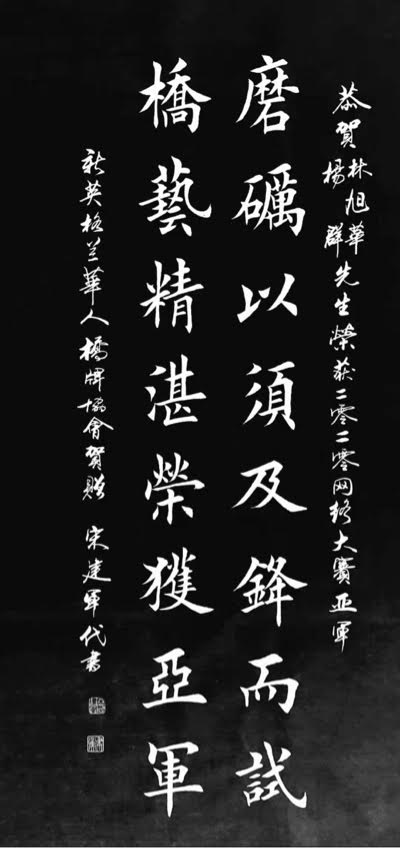 恭賀林旭華楊群先生榮获二零二零网络大赛亚军
磨礪以須及鋒而試
橋藝精湛榮獲亞軍
新英格兰華人橋牌協會賀贈 宋建軍代書